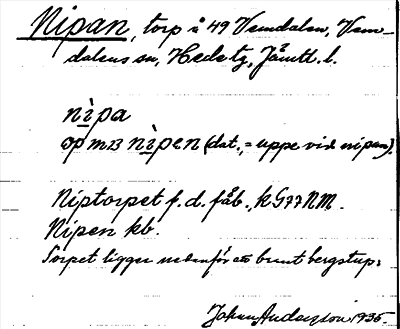 Nipan, torp å 49 Vemdalen, Vem-
dalens sn, Hede tg, Jämtl. l.
nìpa
op mɜ nìpen (dat., = uppe vid nipan).
Niptorpet f. d. fäb., k G77 NM.
Nipen kb.
Torpet ligger nedanför ett brant bergstup:
Johan Andersson 1935.